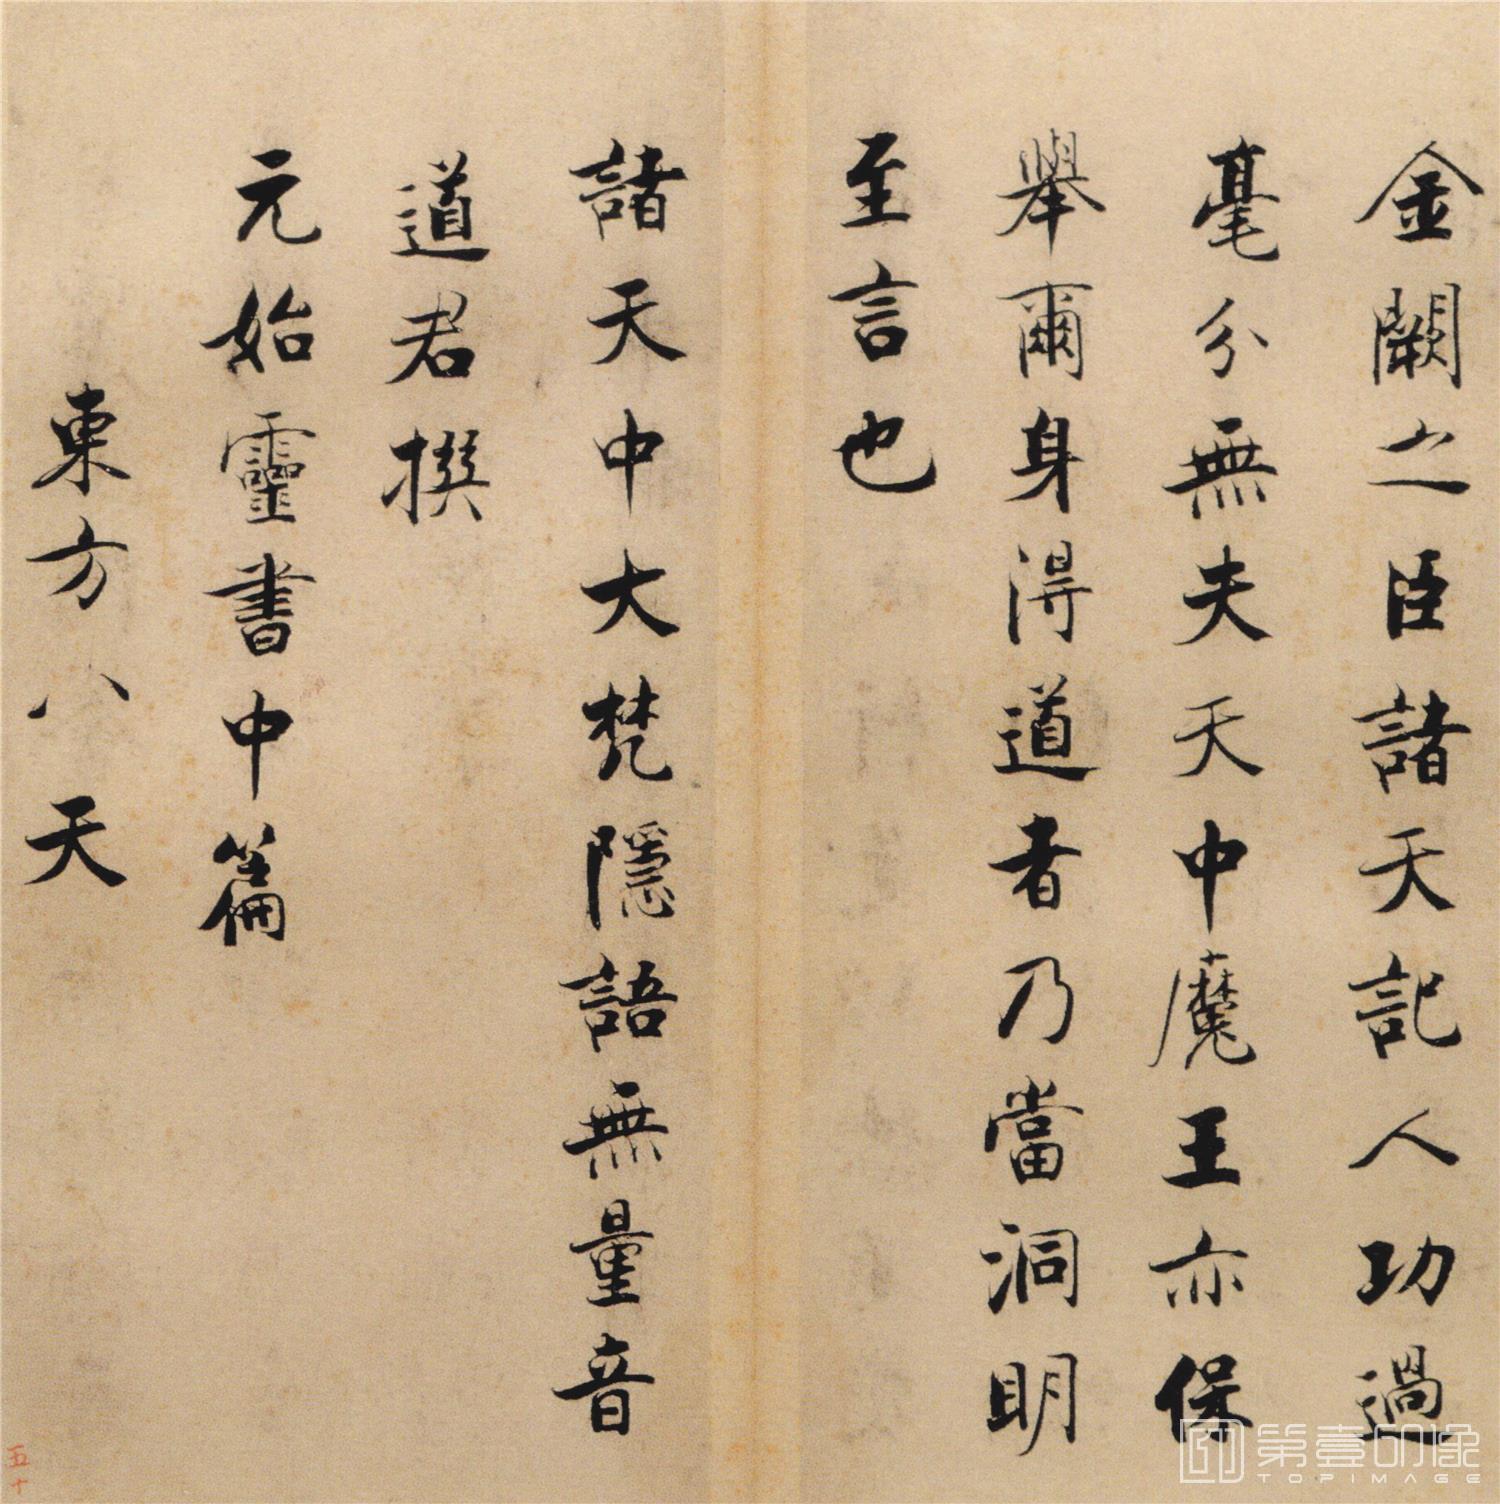 金闕之臣諸天記人功過
毫分無失天中魔王亦保
舉爾身得道者乃當洞明
至言也
諸天中大梵隱語無量音
道君撰
元始靈書中篇
東方八天
五十
第壹印像
TOPIMAGE